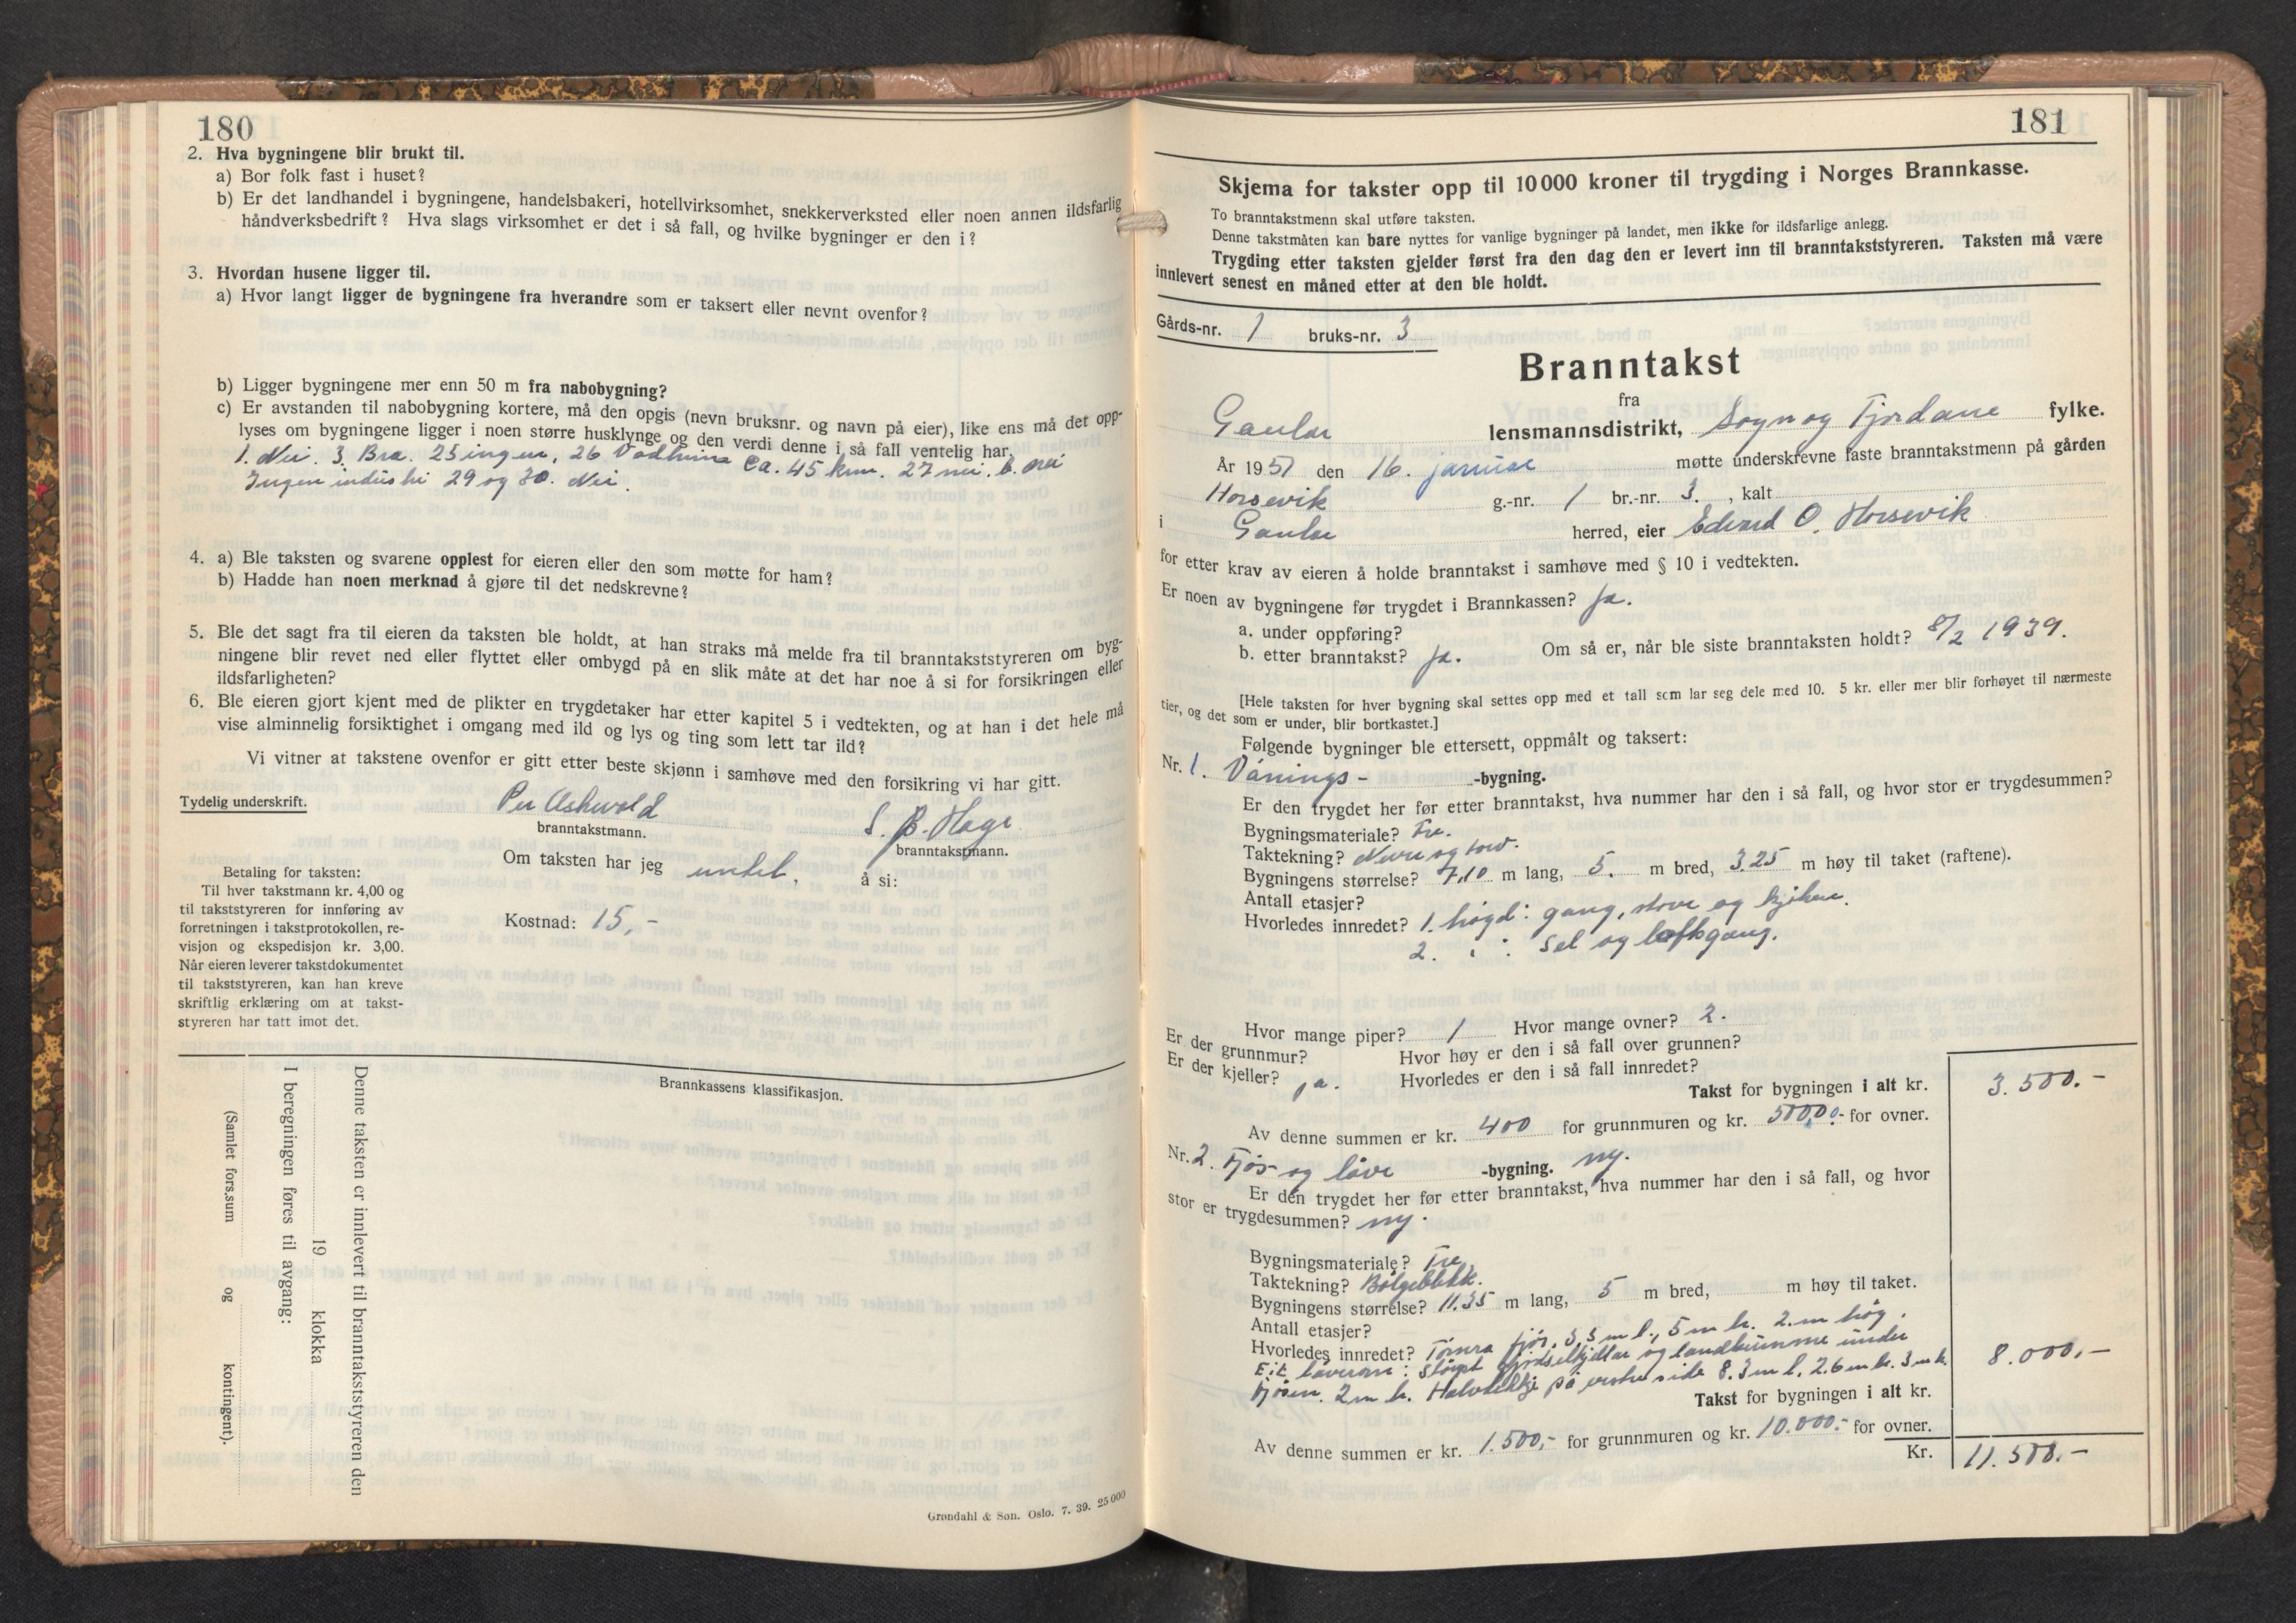 180
2. Hva bygningene blir brukt til.
a) Bor folk fast i huset?
b) Er det landhandel i bygningene, handelsbakeri, hotellvirksomhet, snekkerverksted eller noen annen ildsfarlig
håndverksbedrift? Hva slags virksomhet er det i så fall, og hvilke bygninger er den i?
3. Hvordan husene ligger til.
a) Hvor langt ligger de bygningene fra hverandre som er taksert eller nevnt ovenfor?
b) Ligger bygningene mer enn 50 m fra nabobygning?
c) Er avstanden til nabobygning kortere, må den opgis (nevn bruksnr. og navn på eier), like ens må det opp-
lyses om bygningene ligger i noen større husklynge og den verdi denne i så fall ventelig har.
1. Nei. 3. Bra. 25 ingen, 26 ca. 45 km. 27 nei. 6. nei
Ingen industri 29 og 30. Nei.
4. a) Ble taksten og svarene opplest for eieren eller den som møtte for ham?
b) Hadde han noen merknad å gjøre til det nedskrevne?
5. Ble det sagt fra til eieren da taksten ble holdt, at han straks må melde fra til branntakststyreren om byg-
ningene blir revet ned eller flyttet eller ombygd på en slik måte at det har noe å si for forsikringen eller
ildsfarligheten?
6. Ble eieren gjort kjent med de plikter en trygdetaker har etter kapitel 5 i vedtekten, og at han i det hele må
vise alminnelig forsiktighet i omgang med ild og lys og ting som lett tar ild?
Vi vitner at takstene ovenfor er gitt etter beste skjønn i samhøve med den forsikring vi har gitt.
Tydelig underskrift.
Per S. B. Hage
branntakstmann. branntakstmann.
Om taksten har jeg intet, å si:
Betaling for taksten:
Til hver takstmann kr. 4,00 og
til takststyreren for innføring av
forretningen i takstprotokollen, re-
visjon og ekspedisjon kr. 3,00.
Når eieren leverer takstdokumentet
til takststyreren, kan han kreve
skriftlig erklæring om at takst-
styreren har tatt imot det.
Kostnad: 15,-
Brannkassens klassifikasjon.
Denne taksten er innlevert til branntakststyreren den
19 klokka
I beregningen føres til avgang:
(Samlet fors.sum og kontingent).
Grøndahl & Søn. Oslo. 7. 39. 25 000
181
Skjema for takster opp til 10 000 kroner til trygding i Norges Brannkasse.
To branntakstmenn skal utføre taksten.
Denne takstmåten kan bare nyttes for vanlige bygninger på landet, men ikke for ildsfarlige anlegg.
Trygding etter taksten gjelder først fra den dag den er levert inn til branntakststyreren. Taksten må være
innlevert senest en måned etter at den ble holdt.
Gårds-nr. 1 bruks-nr. 3
Branntakst
fra
Gaular lensmannsdistrikt, Sogn og Fjordane fylke.
År 1951 den 16. januar møtte underskrevne faste branntakstmenn på gården
Horsevik g.-nr. 1 br.-nr. 3. , kalt
i Gaular herred, eier Edvard O. Horsevik
for etter krav av eieren å holde branntakst i samhøve med § 10 i vedtekten.
Er noen av bygningene før trygdet i Brannkassen? Ja.
a. under oppføring?
b. etter branntakst? Ja. Om så er, når ble siste branntaksten holdt? 8/2 1939.
[Hele taksten for hver bygning skal settes opp med et tall som lar seg dele med 10. 5 kr. eller mer blir forhøyet til nærmeste
tier, og det som er under, blir bortkastet.]
Følgende bygninger ble ettersett, oppmålt og taksert:
Nr. 1. Vånings- -bygning.
Er den trygdet her før etter branntakst, hva nummer har den i så fall, og hvor stor er trygdesummen?
Bygningsmateriale? Tre.
Taktekning? Never og torv.
Bygningens størrelse? 7,10 m lang, 5. m bred, 3.25 m høy til taket (raftene).
Antall etasjer?
Hvorledes innredet? 1. høgd: gang, stove og kjøken.
2. " : Sel og loftsgang.
Hvor mange piper? 1 Hvor mange ovner? 2.
Er der grunnmur? Hvor høy er den i så fall over grunnen?
Er der kjeller? ja. Hvorledes er den i så fall innredet?
Takst for bygningen i alt kr. 3.500.-
Av denne summen er kr. 400 for grunnmuren og kr. for ovner.
Nr. 2. Fjøs og løve -bygning. ny.
Er den trygdet her før etter branntakst, hva nummer har den i så fall, og hvor
stor er trygdesummen? ny.
Bygningsmateriale? Tre
Taktekning? Bølgeblikk.
Bygningens størrelse? 11.35 m lang, 5 m bred, m høy til taket.
Antall etasjer?
Hvorledes innredet? Tømra fjøs, 3,5 m l., 5 m br. 2. m høg.
Eit løverom: Støypt og landbrumme under
fjøsen. 2 m h. på side 8.3 m l. 2.6 m br. 3 m h. 8.000,-
Takst for bygningen i alt kr.
Av denne summen er kr. 1.500,- for grunnmuren og kr. 10.000.- for ovner.
Kr. 11.500.-